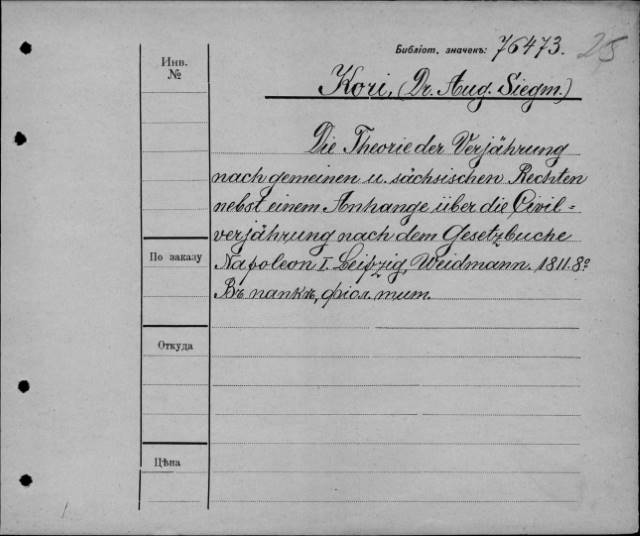 Библіот. значекъ: 76473. 25
Инв.
№
Kori, (Dr. Aug. Siegm.)
Die Theorie der Verjährung
nach gemeinen u. sächsischen Rechten
nebst einem Anhange über die Civil=
verjährung nach dem Gesetzbuche
По заказу
Napoleon I. Leipzig, Weidmann. 1811. 8º
Въ папкѣ, фіол. тит.
Откуда
Цѣна